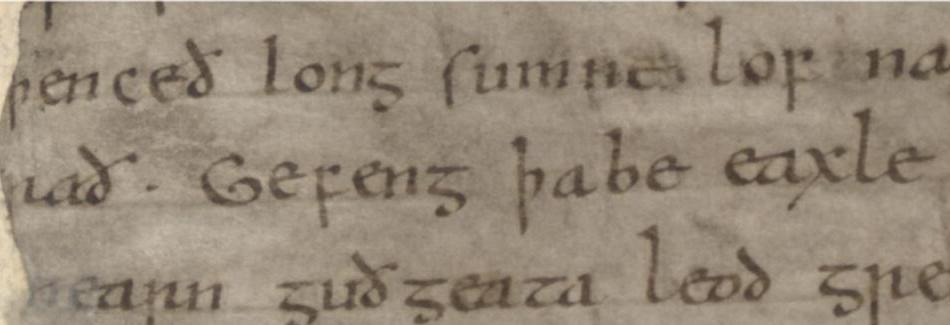 þenceð long sumne lof na
rað · Gefeng þabe eaxle
mearn guð geata leod gre